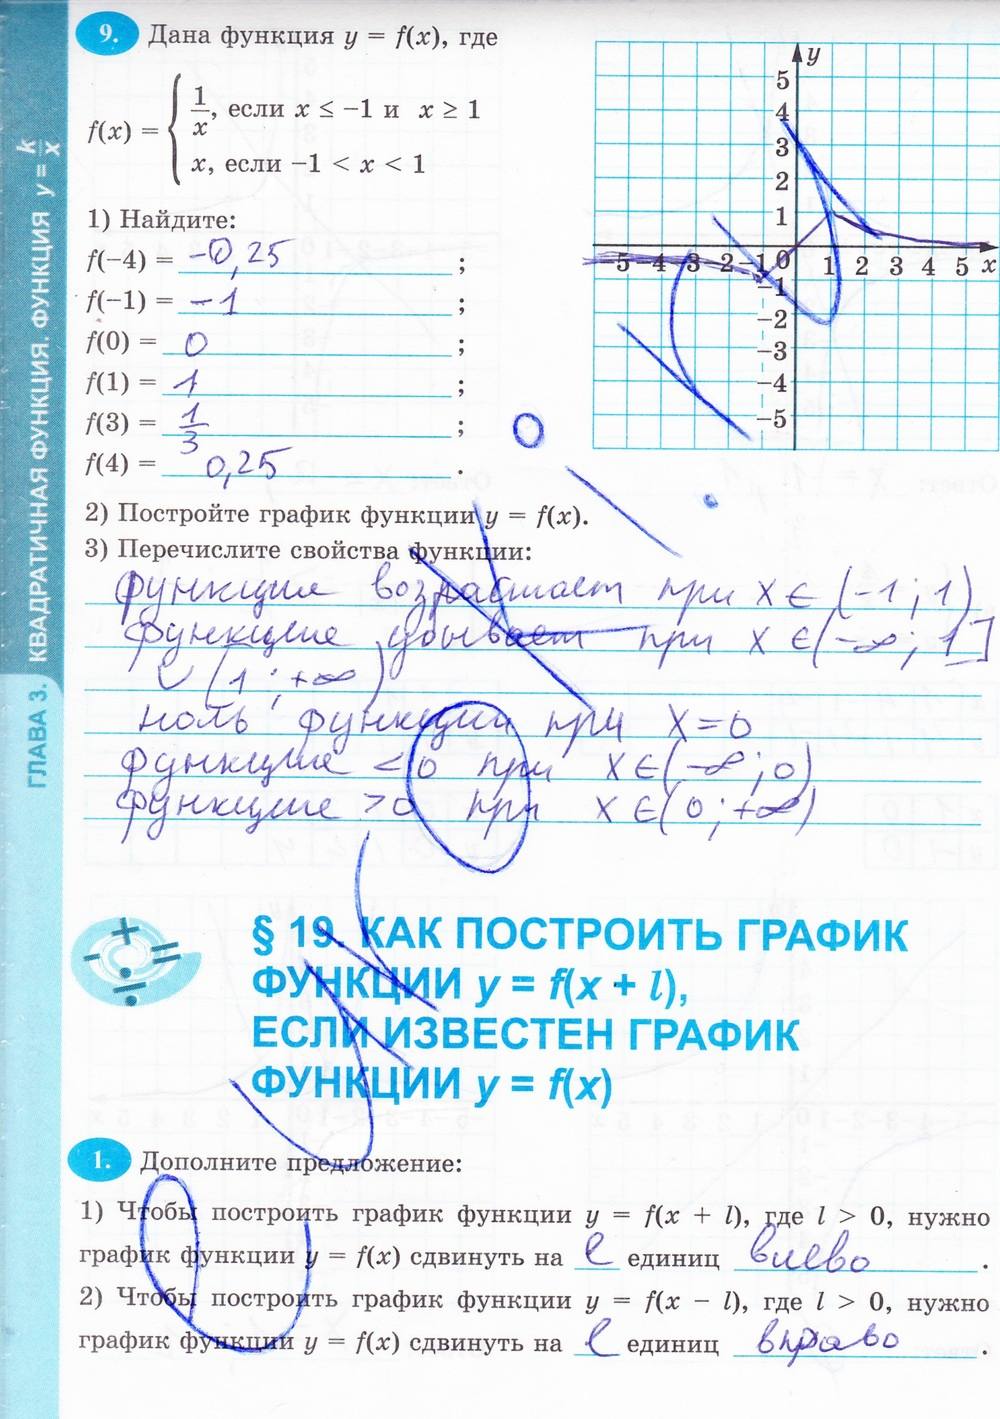 9. Дана функция y = f(x), где
f(x) = { 1/x, если x ≤ −1 и x ≥ 1
x, если −1 < x < 1
1) Найдите:
f(−4) = −0,25 ;
f(−1) = −1 ;
f(0) = 0 ;
f(1) = 1 ;
f(3) = 1/3 ;
f(4) = 0,25 .
y
5
4
3
2
1
−5 −4 −3 −2 −1 0 1 2 3 4 5 x
−1
−2
−3
−4
−5
2) Постройте график функции y = f(x).
3) Перечислите свойства функции:
функция возрастает при x ∈ (−1; 1)
функция убывает при x ∈ (−∞; 1]
∪ (1; +∞)
ноль функции при x = 0
функция < 0 при x ∈ (−∞; 0)
функция > 0 при x ∈ (0; +∞)
ГЛАВА 3. КВАДРАТИЧНАЯ ФУНКЦИЯ. ФУНКЦИЯ y = k/x
§ 19. КАК ПОСТРОИТЬ ГРАФИК
ФУНКЦИИ y = f(x + l),
ЕСЛИ ИЗВЕСТЕН ГРАФИК
ФУНКЦИИ y = f(x)
1. Дополните предложение:
1) Чтобы построить график функции y = f(x + l), где l > 0, нужно
график функции y = f(x) сдвинуть на l единиц влево .
2) Чтобы построить график функции y = f(x − l), где l > 0, нужно
график функции y = f(x) сдвинуть на l единиц вправо .